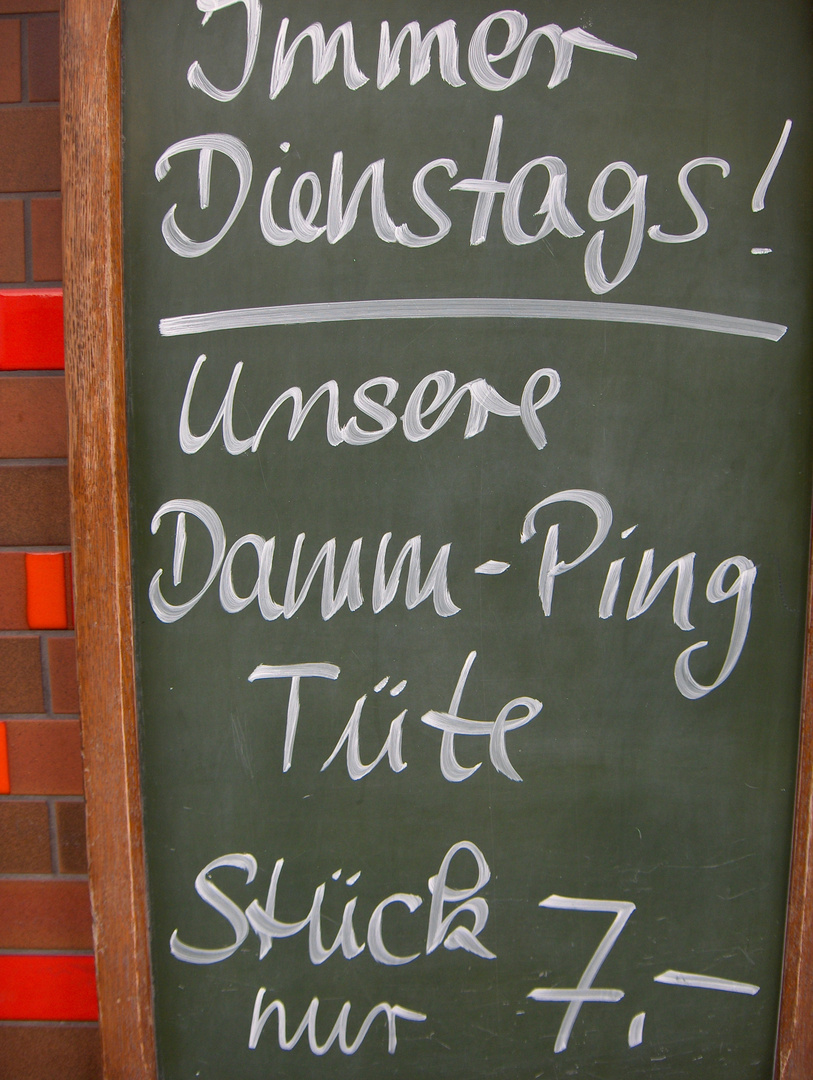 Immer
Dienstags!
Unsere
Damm-Ping
Tüte
Stück
nur 7.-